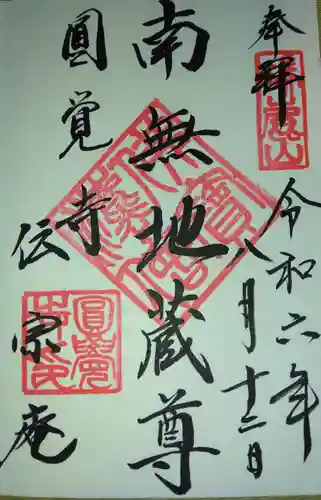 奉拝
令和六年
八月十二日
南無地蔵尊
圓覚寺
伝宗庵